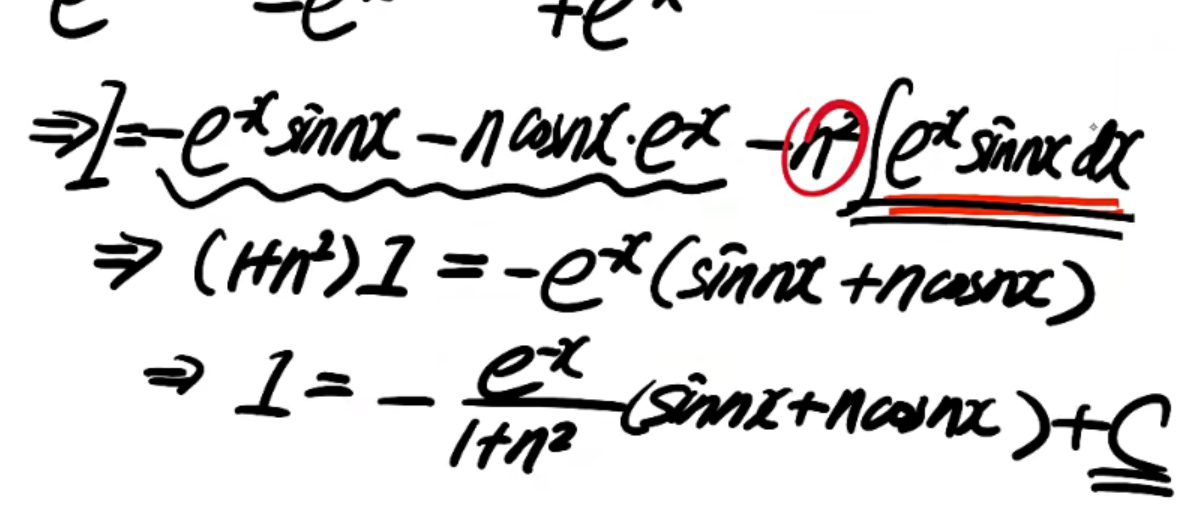 e −e +e⁻ˣ
⇒ I = −e⁻ˣ sin nx − n cos nx · e⁻ˣ − n² ∫ e⁻ˣ sin nx dx
⇒ (1+n²) I = −e⁻ˣ (sin nx + n cos nx)
⇒ I = − e⁻ˣ/(1+n²) (sin nx + n cos nx) + C